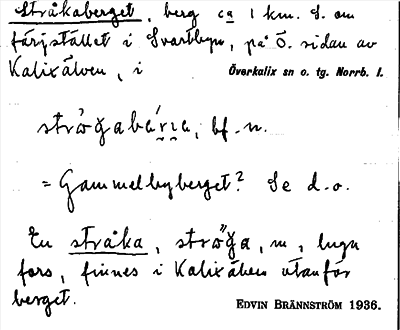 Stråkaberget, berg ca 1 km. S. om
färjstället i Svartbyn, på Ö. sidan av
Kalixälven, i Överkalix sn o. tg. Norrb. l.
bf. n.
= Gammelbyberget? Se d. o.
En stråka, m., lugn
fors, finnes i Kalixälven utanför
berget.
EDVIN BRÄNNSTRÖM 1936.